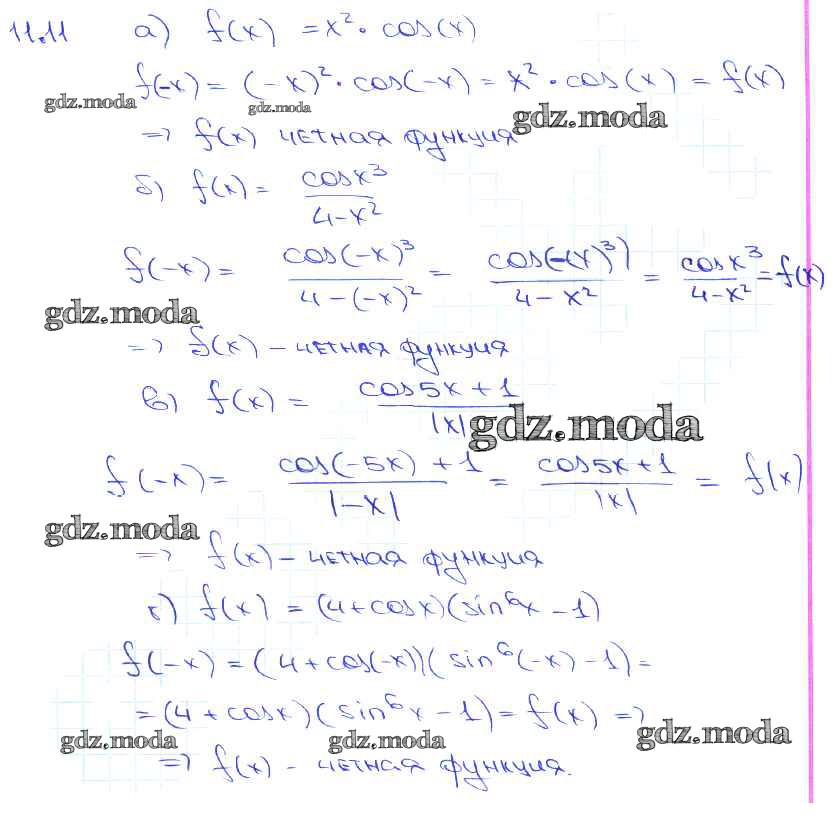 11.11 а) f(x) = x² · cos(x)
f(-x) = (-x)² · cos(-x) = x² · cos(x) = f(x)
gdz.moda gdz.moda gdz.moda
=> f(x) четная функция
б) f(x) = cosx³ / 4-x²
f(-x) = cos(-x)³ / 4-(-x)² = cos(-(x)³) / 4-x² = cosx³ / 4-x² = f(x)
gdz.moda
=> f(x) - четная функция
в) f(x) = cos5x+1 / |x|
gdz.moda
f(-x) = cos(-5x)+1 / |-x| = cos5x+1 / |x| = f(x)
gdz.moda
=> f(x) - четная функция
г) f(x) = (4+cosx)(sin⁶x -1)
f(-x) = (4+cos(-x))(sin⁶(-x) -1) =
= (4+cosx)(sin⁶x -1) = f(x) =>
gdz.moda gdz.moda gdz.moda
=> f(x) - четная функция.